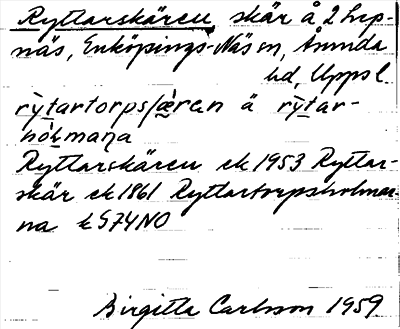 Ryttarskären, skär å 2 Lrp-
näs, Enköpings-Näs sn, Åsunda
hd, Uppsl.
rỳtartorpsʃæ̀ran ä rỳtar-
hòlmaṇa
Ryttarskären ek 1953 Ryttar-
skär ek 1861 Ryttartorpsholmar-
na k S74NO
Birgitta Carlsson 1959